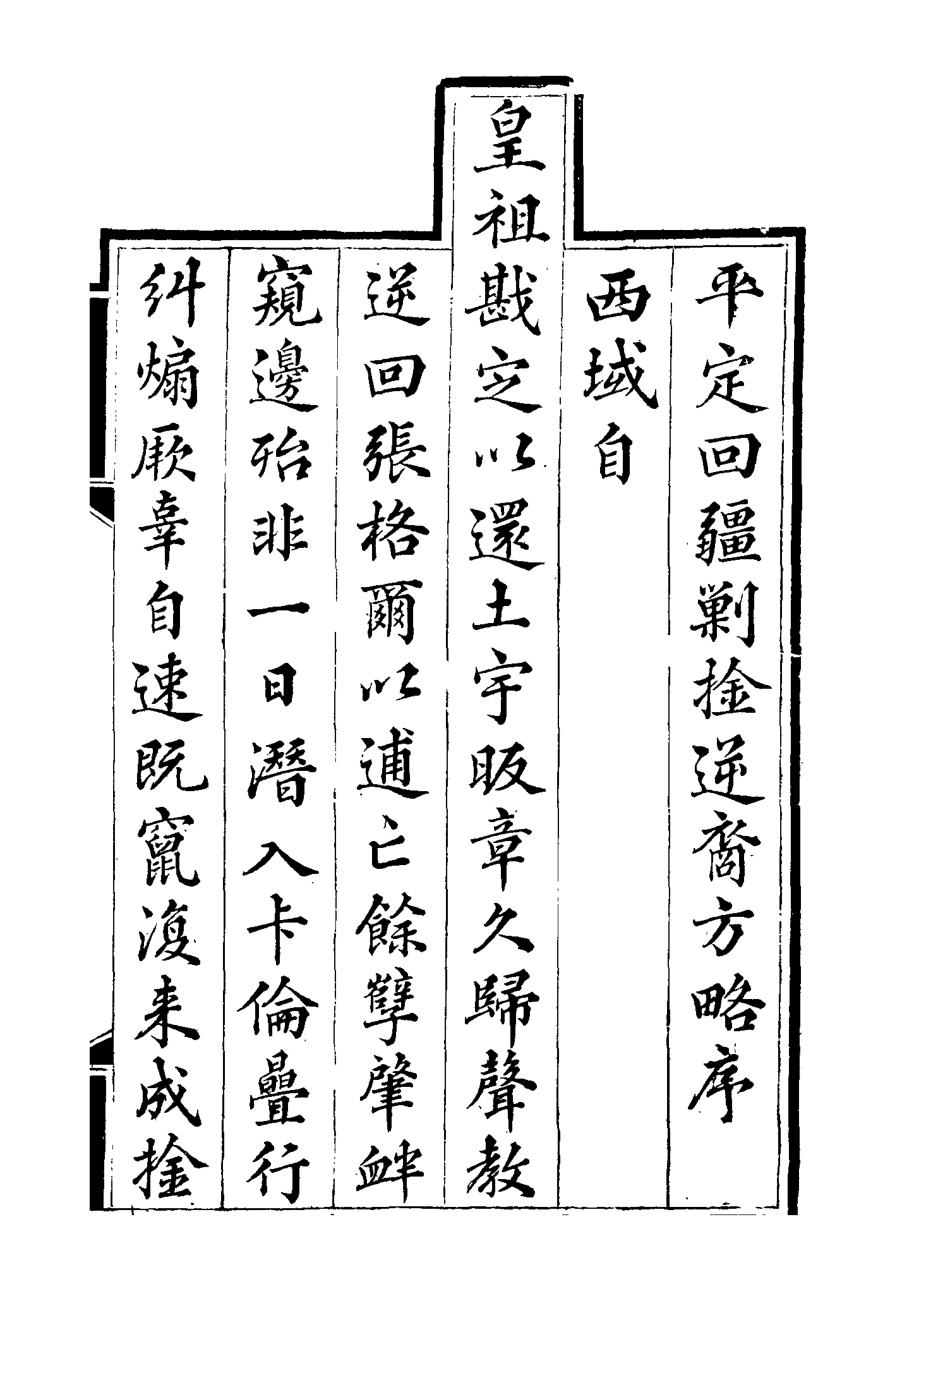 平定回疆剿捡逆裔方略序
西域自
皇祖戡定以還土宇昄章久歸聲教
逆回張格爾以逋亡餘孽肇衅
窺邊殆非一日潛入卡倫疊行
糾煽厥辜自速既竄復来成捡